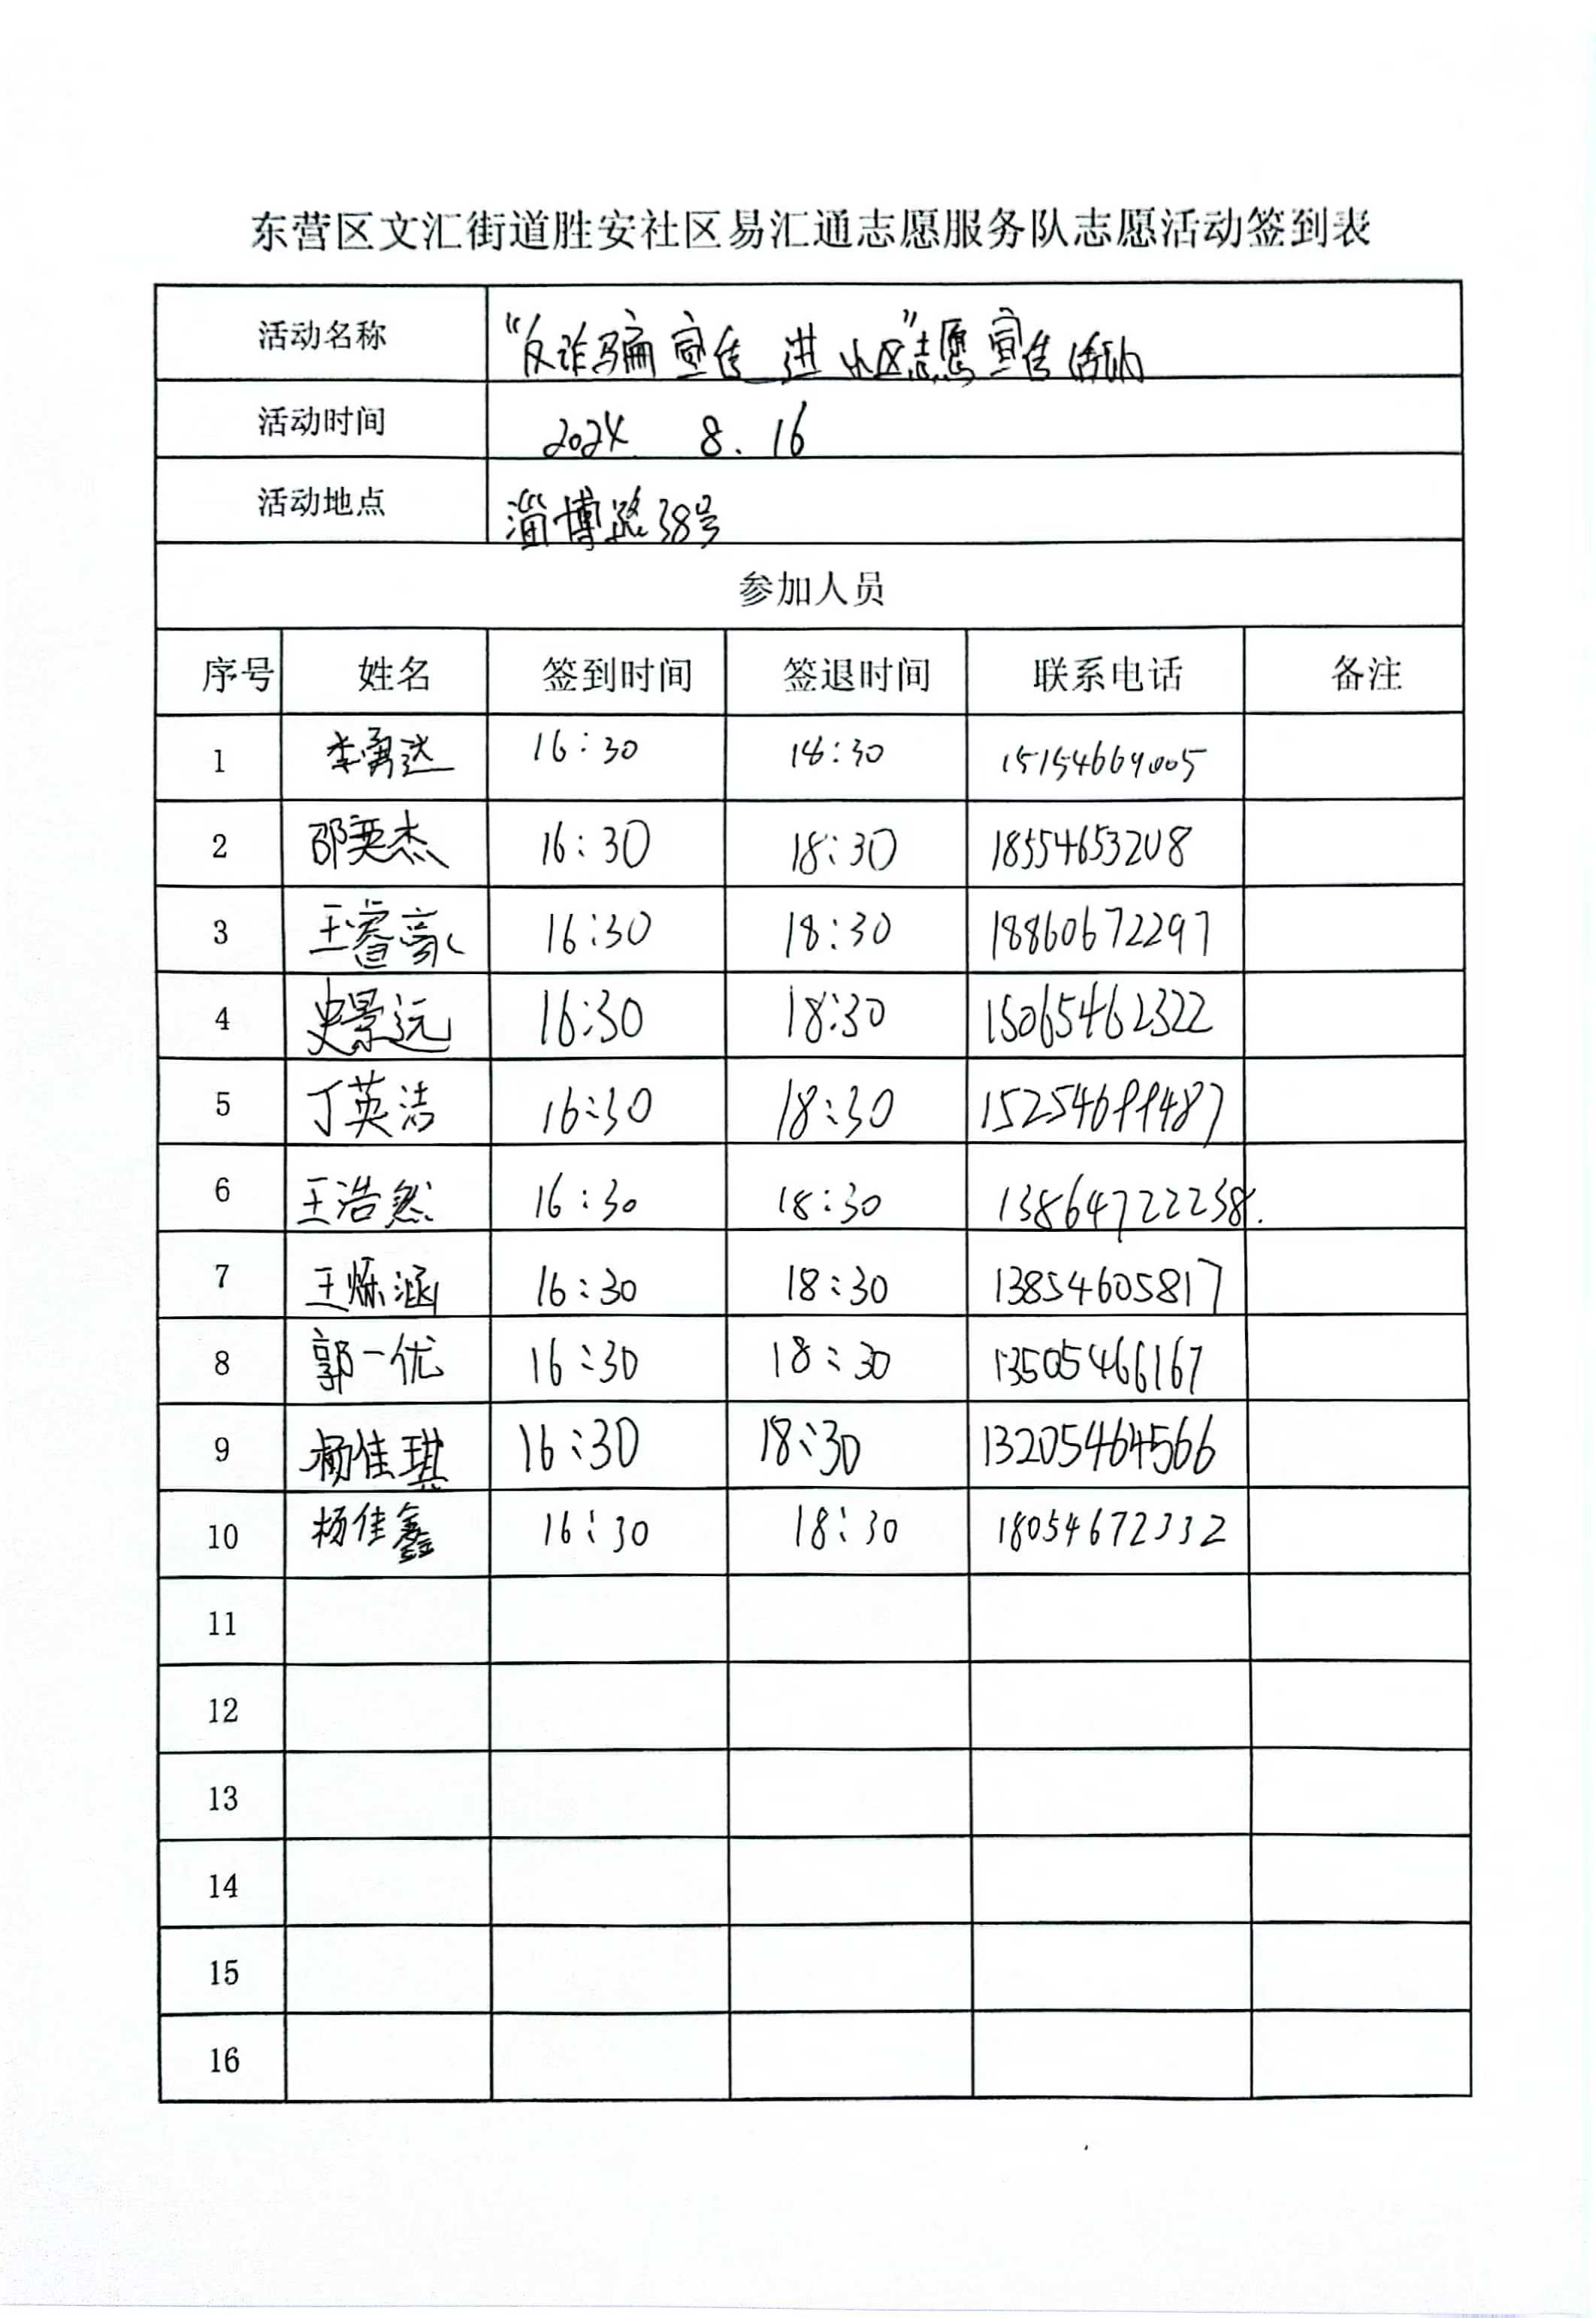 东营区文汇街道胜安社区易汇通志愿服务队志愿活动签到表
活动名称 “反诈骗宣传 进小区”志愿宣传活动
活动时间 2024. 8. 16
活动地点 淄博路38号
参加人员
序号 姓名 签到时间 签退时间 联系电话 备注
1 李勇达 16:30 18:30 15154669005
2 邵英杰 16:30 18:30 18554653208
3 王睿豪 16:30 18:30 18860672297
4 史景远 16:30 18:30 15065462322
5 丁英洁 16:30 18:30 15254699487
6 王浩然 16:30 18:30 13864722238.
7 王烁涵 16:30 18:30 13854605817
8 郭一优 16:30 18:30 13505466167
9 杨佳琪 16:30 18:30 13205464566
10 杨佳鑫 16:30 18:30 18054672332
11
12
13
14
15
16